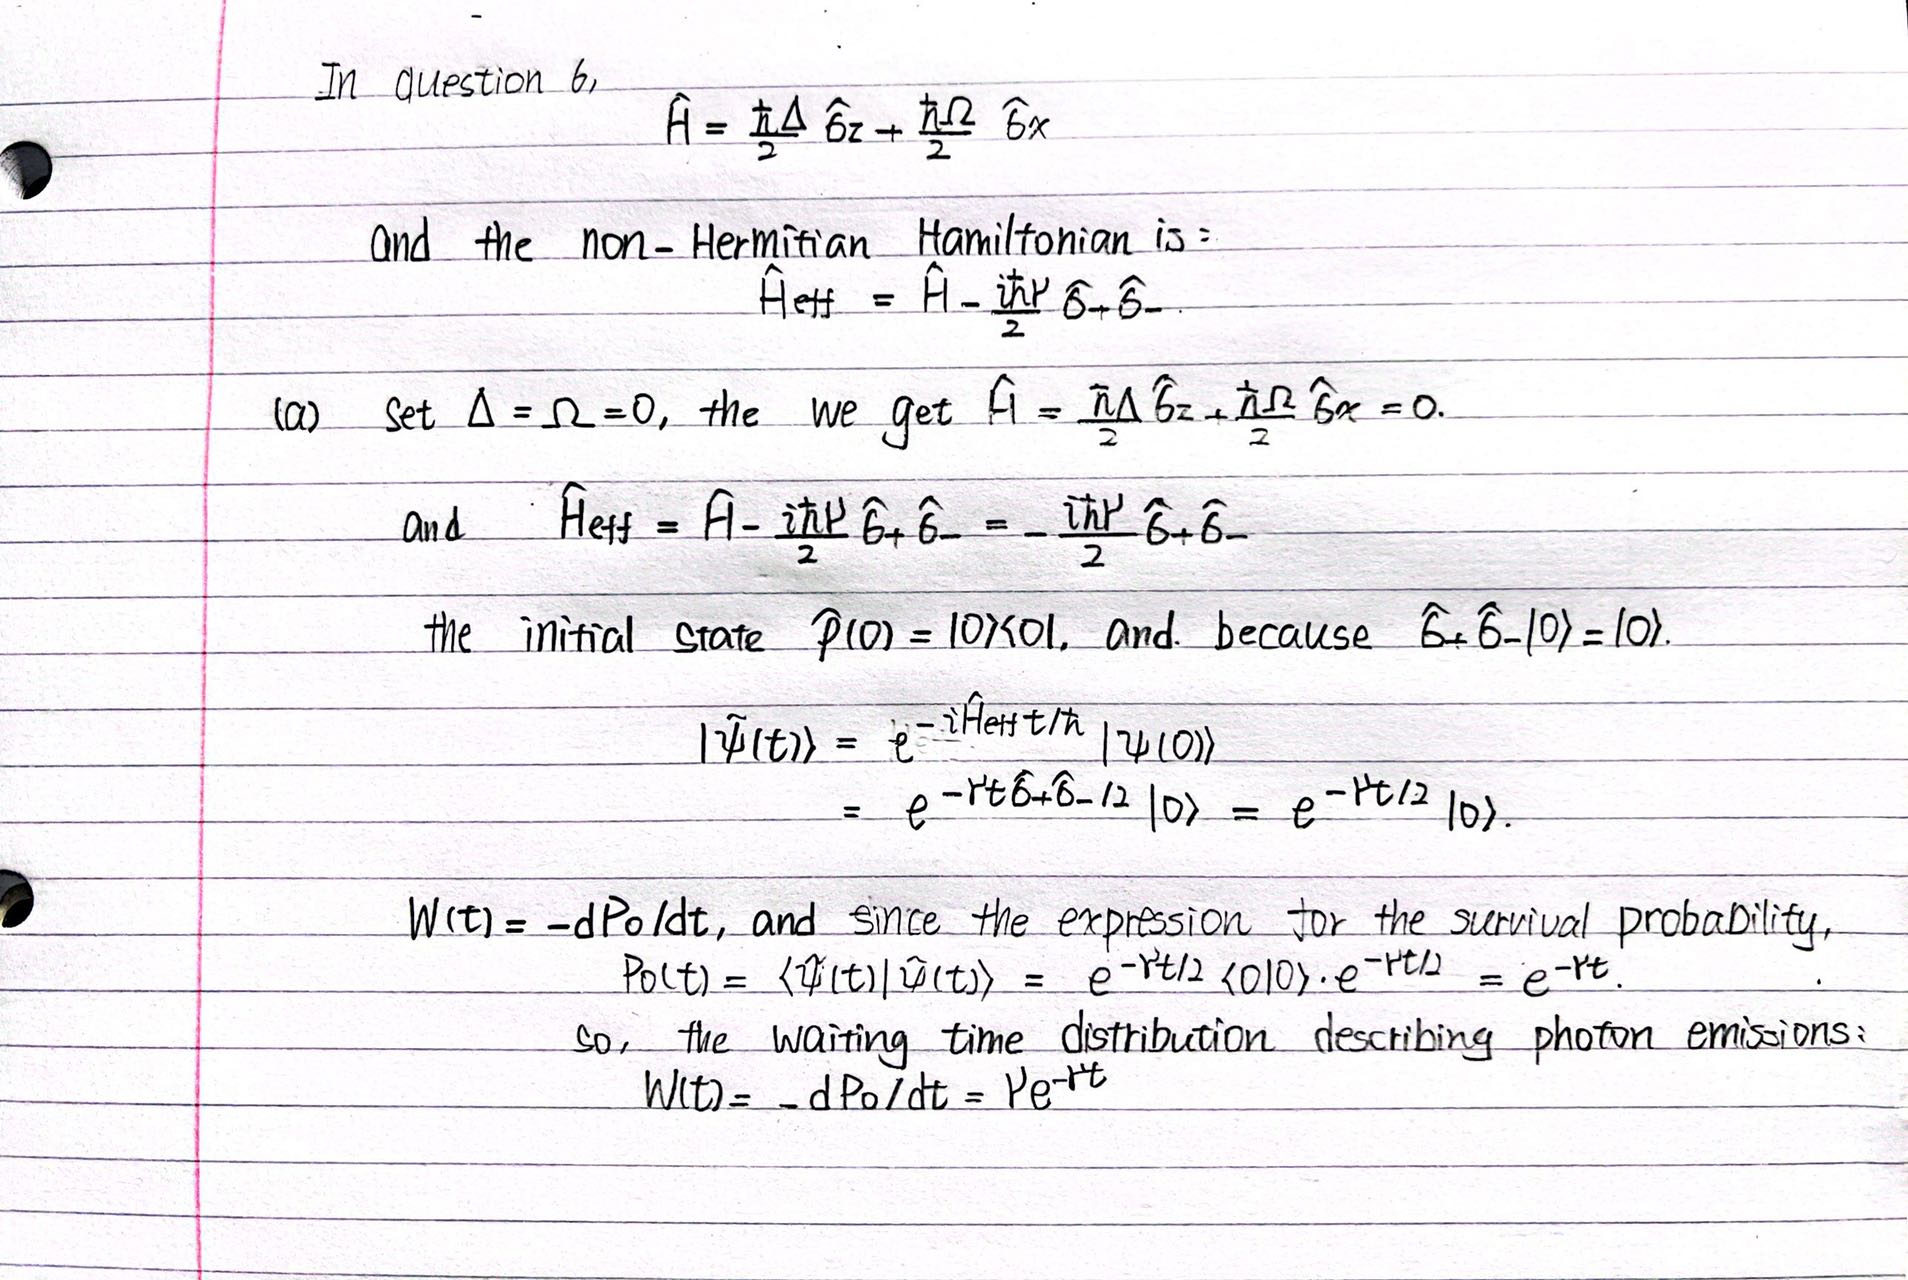 In question 6,
Ĥ = ħΔ/2 σ̂z + ħΩ/2 σ̂x
and the non-Hermitian Hamiltonian is:
Ĥeff = Ĥ - iħγ/2 σ̂+σ̂-.
(a) set Δ = Ω = 0, the we get Ĥ = ħΔ/2 σ̂z + ħΩ/2 σ̂x = 0.
and Ĥeff = Ĥ - iħγ/2 σ̂+σ̂- = - iħγ/2 σ̂+σ̂-
the initial state ρ̂(0) = |0⟩⟨0|, and because σ̂+σ̂-|0⟩ = |0⟩.
|ψ̃(t)⟩ = e^{-iĤeff t/ħ} |ψ(0)⟩
= e^{-γtσ̂+σ̂-/2} |0⟩ = e^{-γt/2} |0⟩.
W(t) = -dP0/dt, and since the expression for the survival probability,
P0(t) = ⟨ψ̃(t)|ψ̃(t)⟩ = e^{-γt/2} ⟨0|0⟩·e^{-γt/2} = e^{-γt}.
so, the waiting time distribution describing photon emissions:
W(t) = -dP0/dt = γe^{-γt}